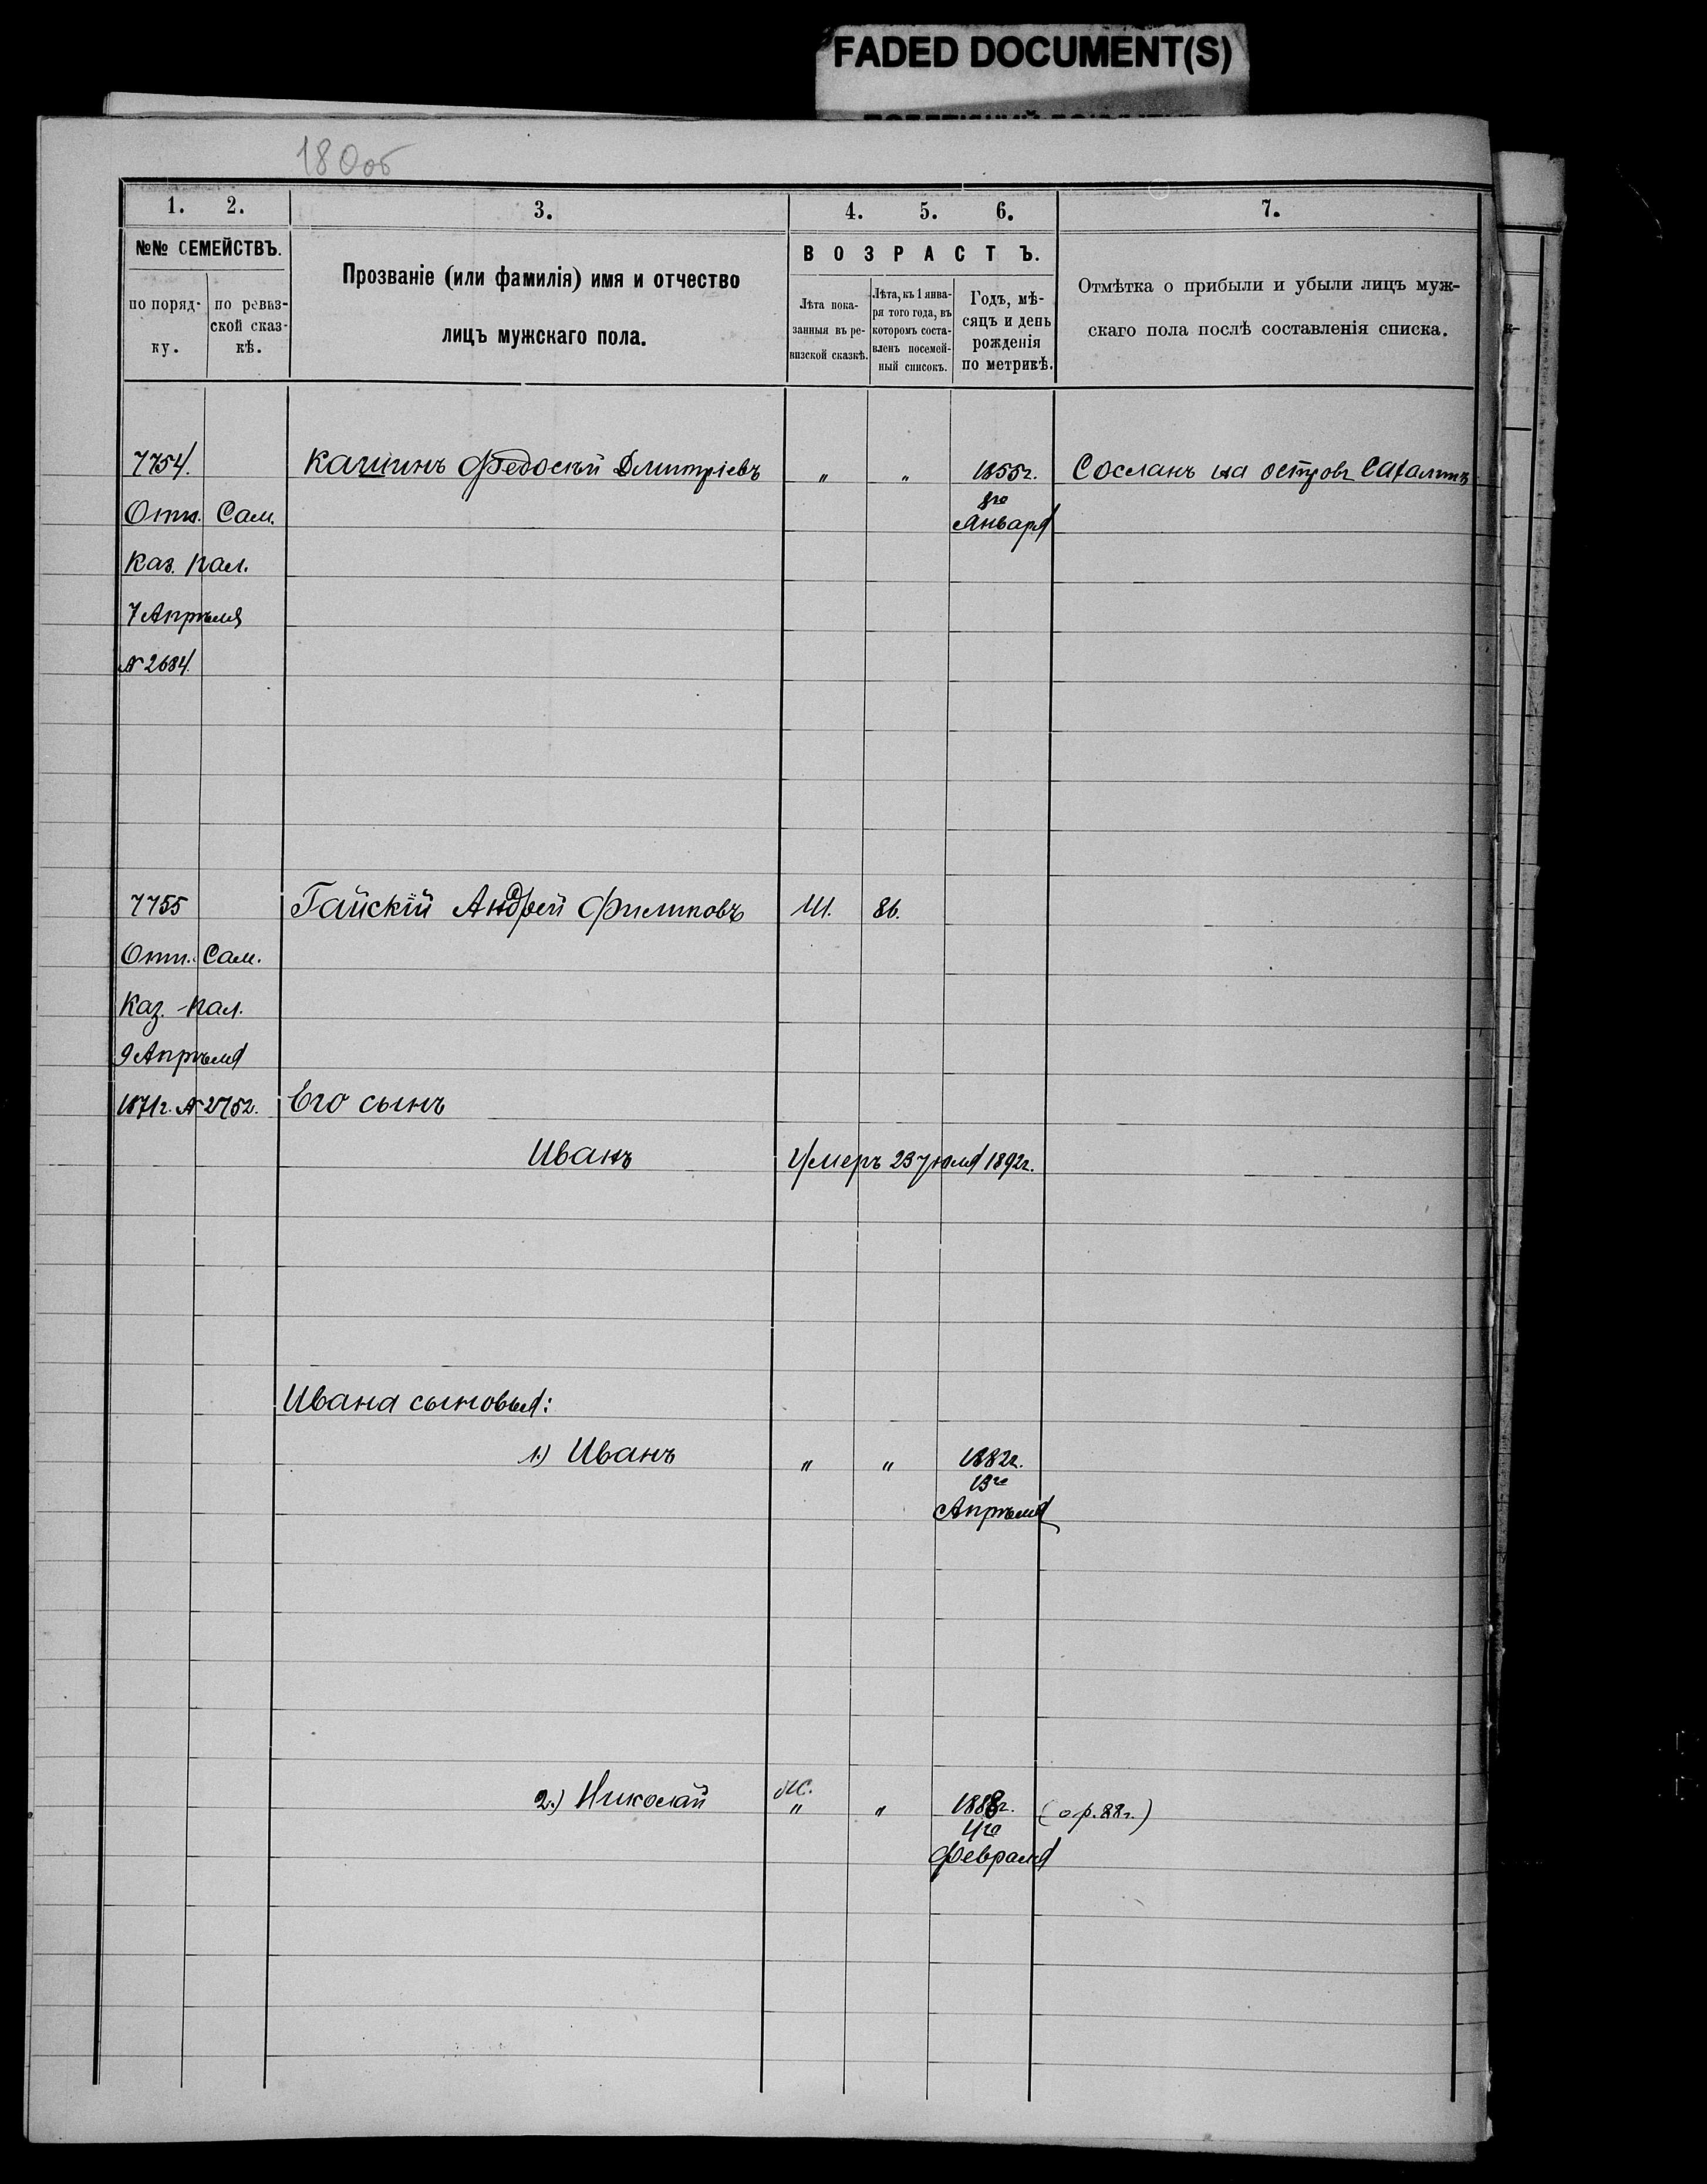 FADED DOCUMENT(S)
180об
1. 2. 3. 4. 5. 6. 7.
№№ СЕМЕЙСТВЪ.
по поряд-
ку.
по ревиз-
ской сказ-
кѣ.
Прозваніе (или фамилія) имя и отчество
лицъ мужскаго пола.
ВОЗРАСТЪ.
Лѣта пока-
занныя въ ре-
визской сказкѣ.
Лѣта, къ 1 янва-
ря того года, въ
которомъ соста-
вленъ посемей-
ный списокъ.
Годъ, мѣ-
сяцъ и день
рожденія
по метрикѣ.
Отмѣтка о прибыли и убыли лицъ муж-
скаго пола послѣ составленія списка.
7754. Кашинъ Федосѣй Дмитріевъ " " 1855г. Сосланъ на островъ Сахалинъ
8го
Отн. Сам. Января
Каз. пал.
7 Апрѣля
№ 2684.
7755 Гайскій Андрей Филиповъ 86.
Отн. Сам.
Каз. пал.
9 Апрѣля
1871г. № 2752. Его сынъ
Иванъ Умеръ 23 Іюля 1892г.
Ивана сыновья:
1.) Иванъ " " 1882г.
13го
Апрѣля
2.) Николай " " 1888г. (о р. 88г.)
4го
Февраля